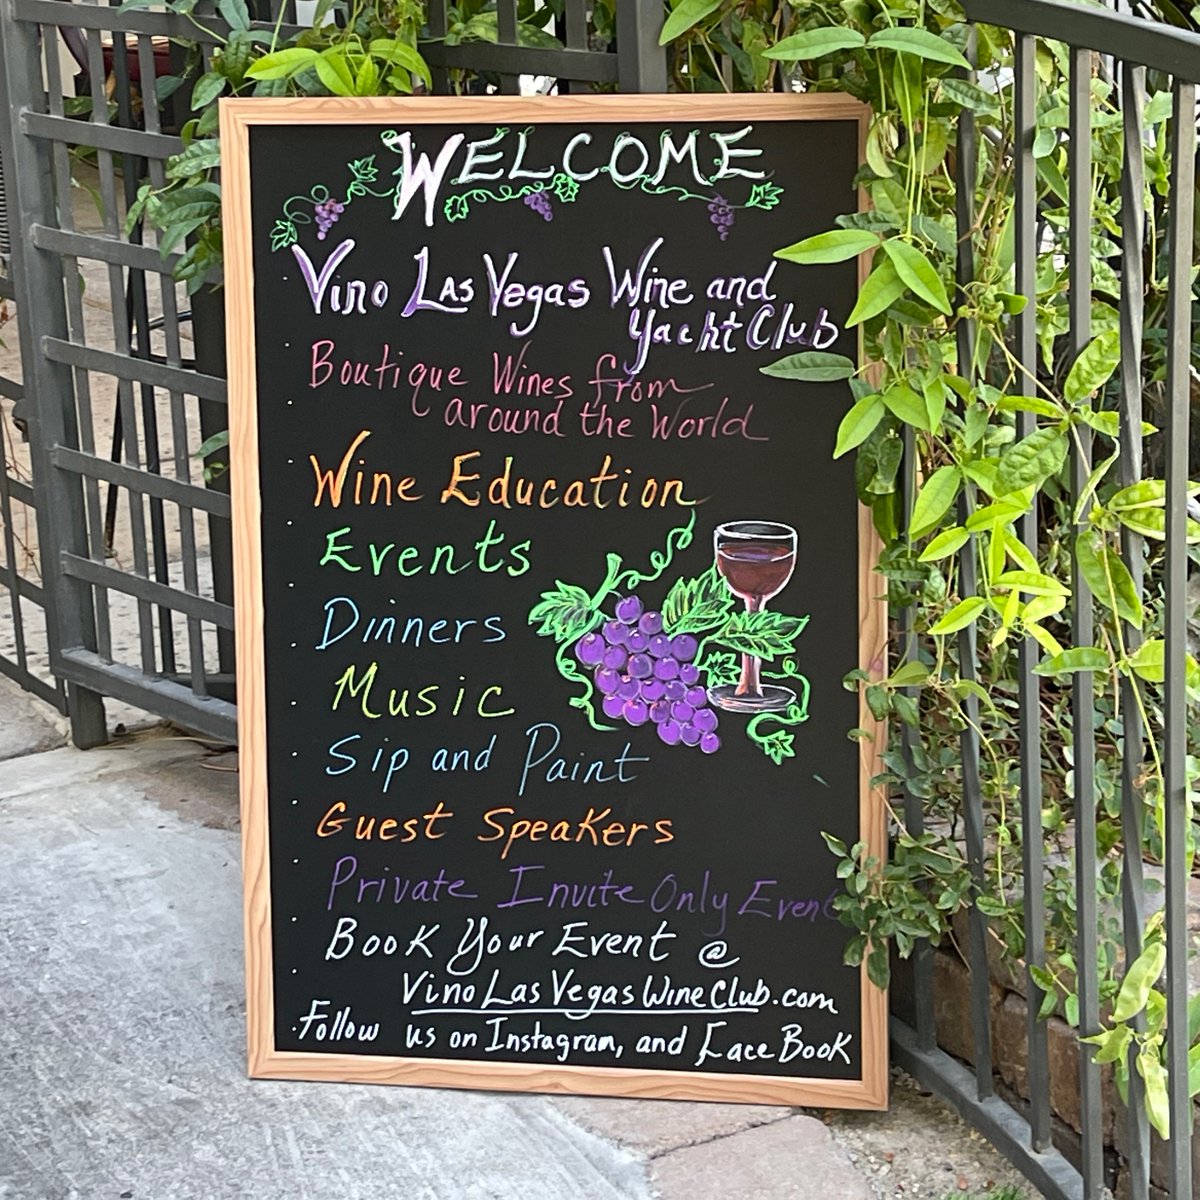 WELCOME
Vino Las Vegas Wine and
Yacht Club
Boutique Wines from
around the World
Wine Education
Events
Dinners
Music
Sip and Paint
Guest Speakers
Private Invite Only Event
Book Your Event @
VinoLasVegasWineClub.com
Follow us on Instagram, and FaceBook